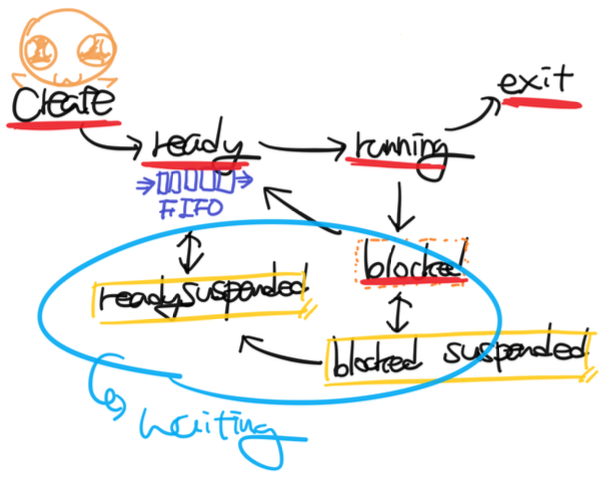 create
exit
ready
running
FIFO
blocked
ready suspended
blocked suspended
waiting